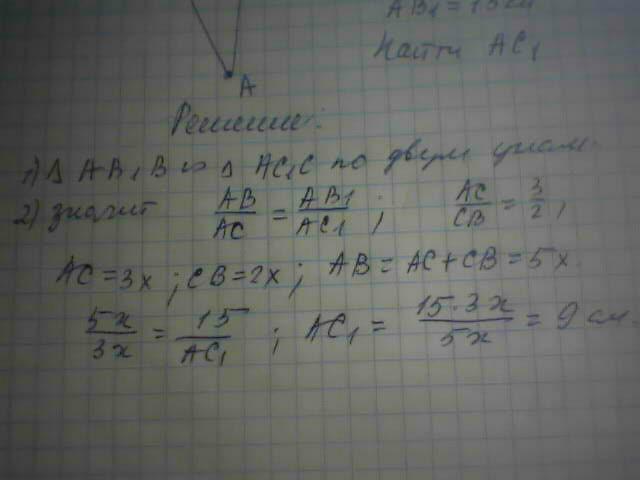 AB₁ = 15 см
Найти AC₁
A
Решение:
1) Δ AB₁B ∾ Δ AC₁C по двум углам.
2) значит AB/AC = AB₁/AC₁ ; AC/CB = 3/2 ,
AC = 3x ; CB = 2x ; AB = AC + CB = 5x.
5x/3x = 15/AC₁ ; AC₁ = 15·3x/5x = 9 см.